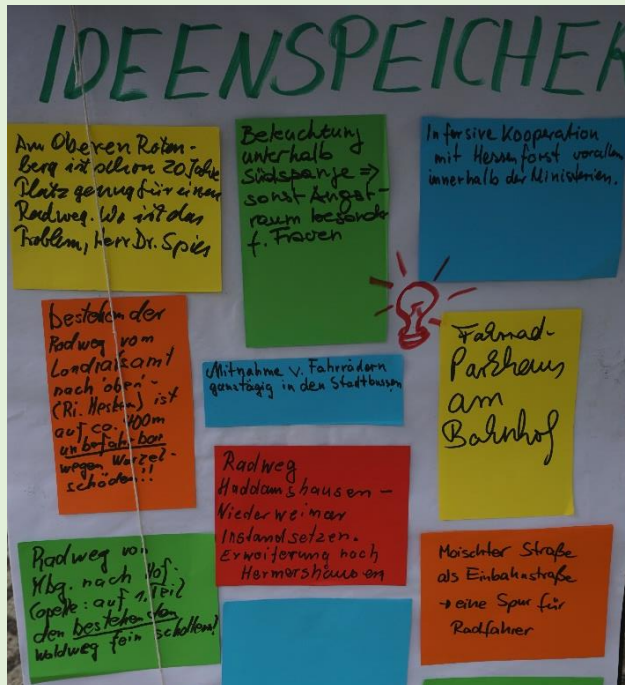 IDEENSPEICHER
Am Oberen Roten-
berg ist schon 20 Jahre
Platz genug für einen
Radweg. Wo ist das
Problem, Herr Dr. Spies
Beleuchtung
unterhalb
Südspange =>
sonst Angst-
raum besonder
f. Frauen
Intensive Kooperation
mit Hessenforst vorallem
innerhalb der Ministerien.
bestehender
Radweg vom
Landratsamt
nach "oben"-
(Ri. Hesken) ist
auf ca. 400m
unbefahrbar
wegen Wurzel-
schäden!!
Mitnahme v. Fahrrädern
ganztägig in den Stadtbussen
Fahrrad-
Parkhaus
am
Bahnhof
Radweg
Haddamshausen -
Niederweimar
Instandsetzen.
Erweiterung nach
Hermershausen
Radweg von
Mbg. nach Hof.
Capelle: auf 1. Teil
den bestehenden
Waldweg fein schottern!
Moischter Straße
als Einbahnstraße
→ eine Spur für
Radfahrer